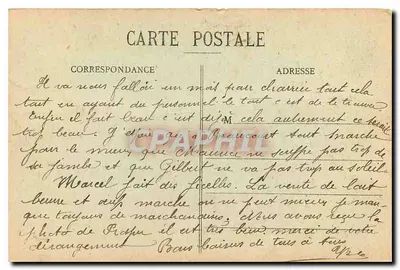 CARTE POSTALE
CORRESPONDANCE
ADRESSE
Il va nous falloir un mois pour charrier tout cela
tout en ayant du personnel le tout c'est de le trouver
enfin il fait beau c'est déjà M cela autrement ce serait
trop beau. J'
et tout marche
CPARAMA
pour le mieux que Maurice ne souffre pas trop de
sa jambe et que Gilbert ne va pas trop au soleil
Marcel fait des ficelles. La vente de lait
beurre et oeufs marche on ne peut mieux je man-
que toujours de marchandises, Nous avons reçu la
photo de il est très bien merci de votre
dérangement Bons baisers de tous à tous